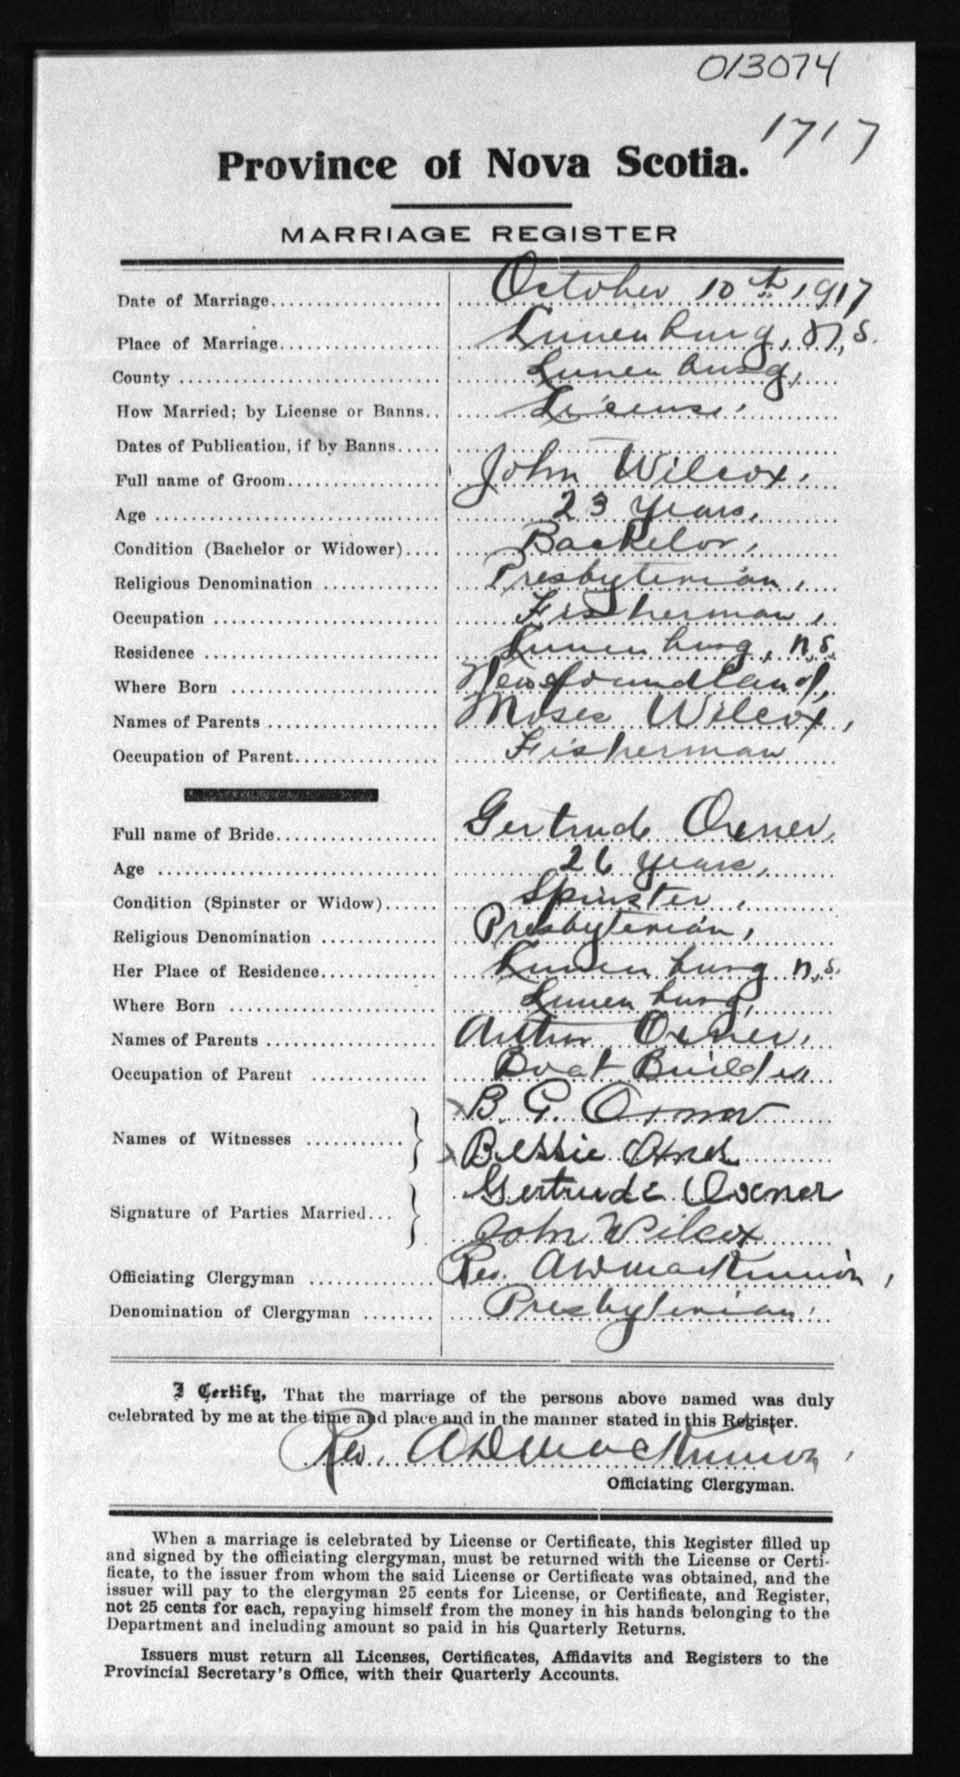 013074
1717
Province of Nova Scotia.
MARRIAGE REGISTER
Date of Marriage.................. October 10th, 1917
Place of Marriage.................. Lunenburg, N.S.
County .................. Lunenburg,
How Married; by License or Banns.. License.
Dates of Publication, if by Banns.....
Full name of Groom.................. John Wilcox.
Age .................. 23 years,
Condition (Bachelor or Widower).... Bachelor,
Religious Denomination ............ Presbyterian,
Occupation .................. Fisherman,
Residence .................. Lunenburg, N.S.
Where Born .................. Newfoundland,
Names of Parents .................. Moses Wilcox,
Occupation of Parent.................. Fisherman
Full name of Bride.................. Gertrude Oxner,
Age .................. 26 years,
Condition (Spinster or Widow)...... Spinster,
Religious Denomination ............ Presbyterian,
Her Place of Residence............ Lunenburg N.S.
Where Born .................. Lunenburg,
Names of Parents .................. Arthur Oxner,
Occupation of Parent ............ Boat Builder
x B. G. Oxner
Names of Witnesses ...........
x Bessie Oxner
Gertrude Oxner
Signature of Parties Married...
John Wilcox
Officiating Clergyman ............ Rev. A W MacKinnon,
Denomination of Clergyman ........ Presbyterian.
I Certify, That the marriage of the persons above named was duly
celebrated by me at the time and place and in the manner stated in this Register.
Rev. A W MacKinnon,
Officiating Clergyman.
When a marriage is celebrated by License or Certificate, this Register filled up
and signed by the officiating clergyman, must be returned with the License or Certi-
ficate, to the issuer from whom the said License or Certificate was obtained, and the
issuer will pay to the clergyman 25 cents for License, or Certificate, and Register,
not 25 cents for each, repaying himself from the money in his hands belonging to the
Department and including amount so paid in his Quarterly Returns.
Issuers must return all Licenses, Certificates, Affidavits and Registers to the
Provincial Secretary's Office, with their Quarterly Accounts.